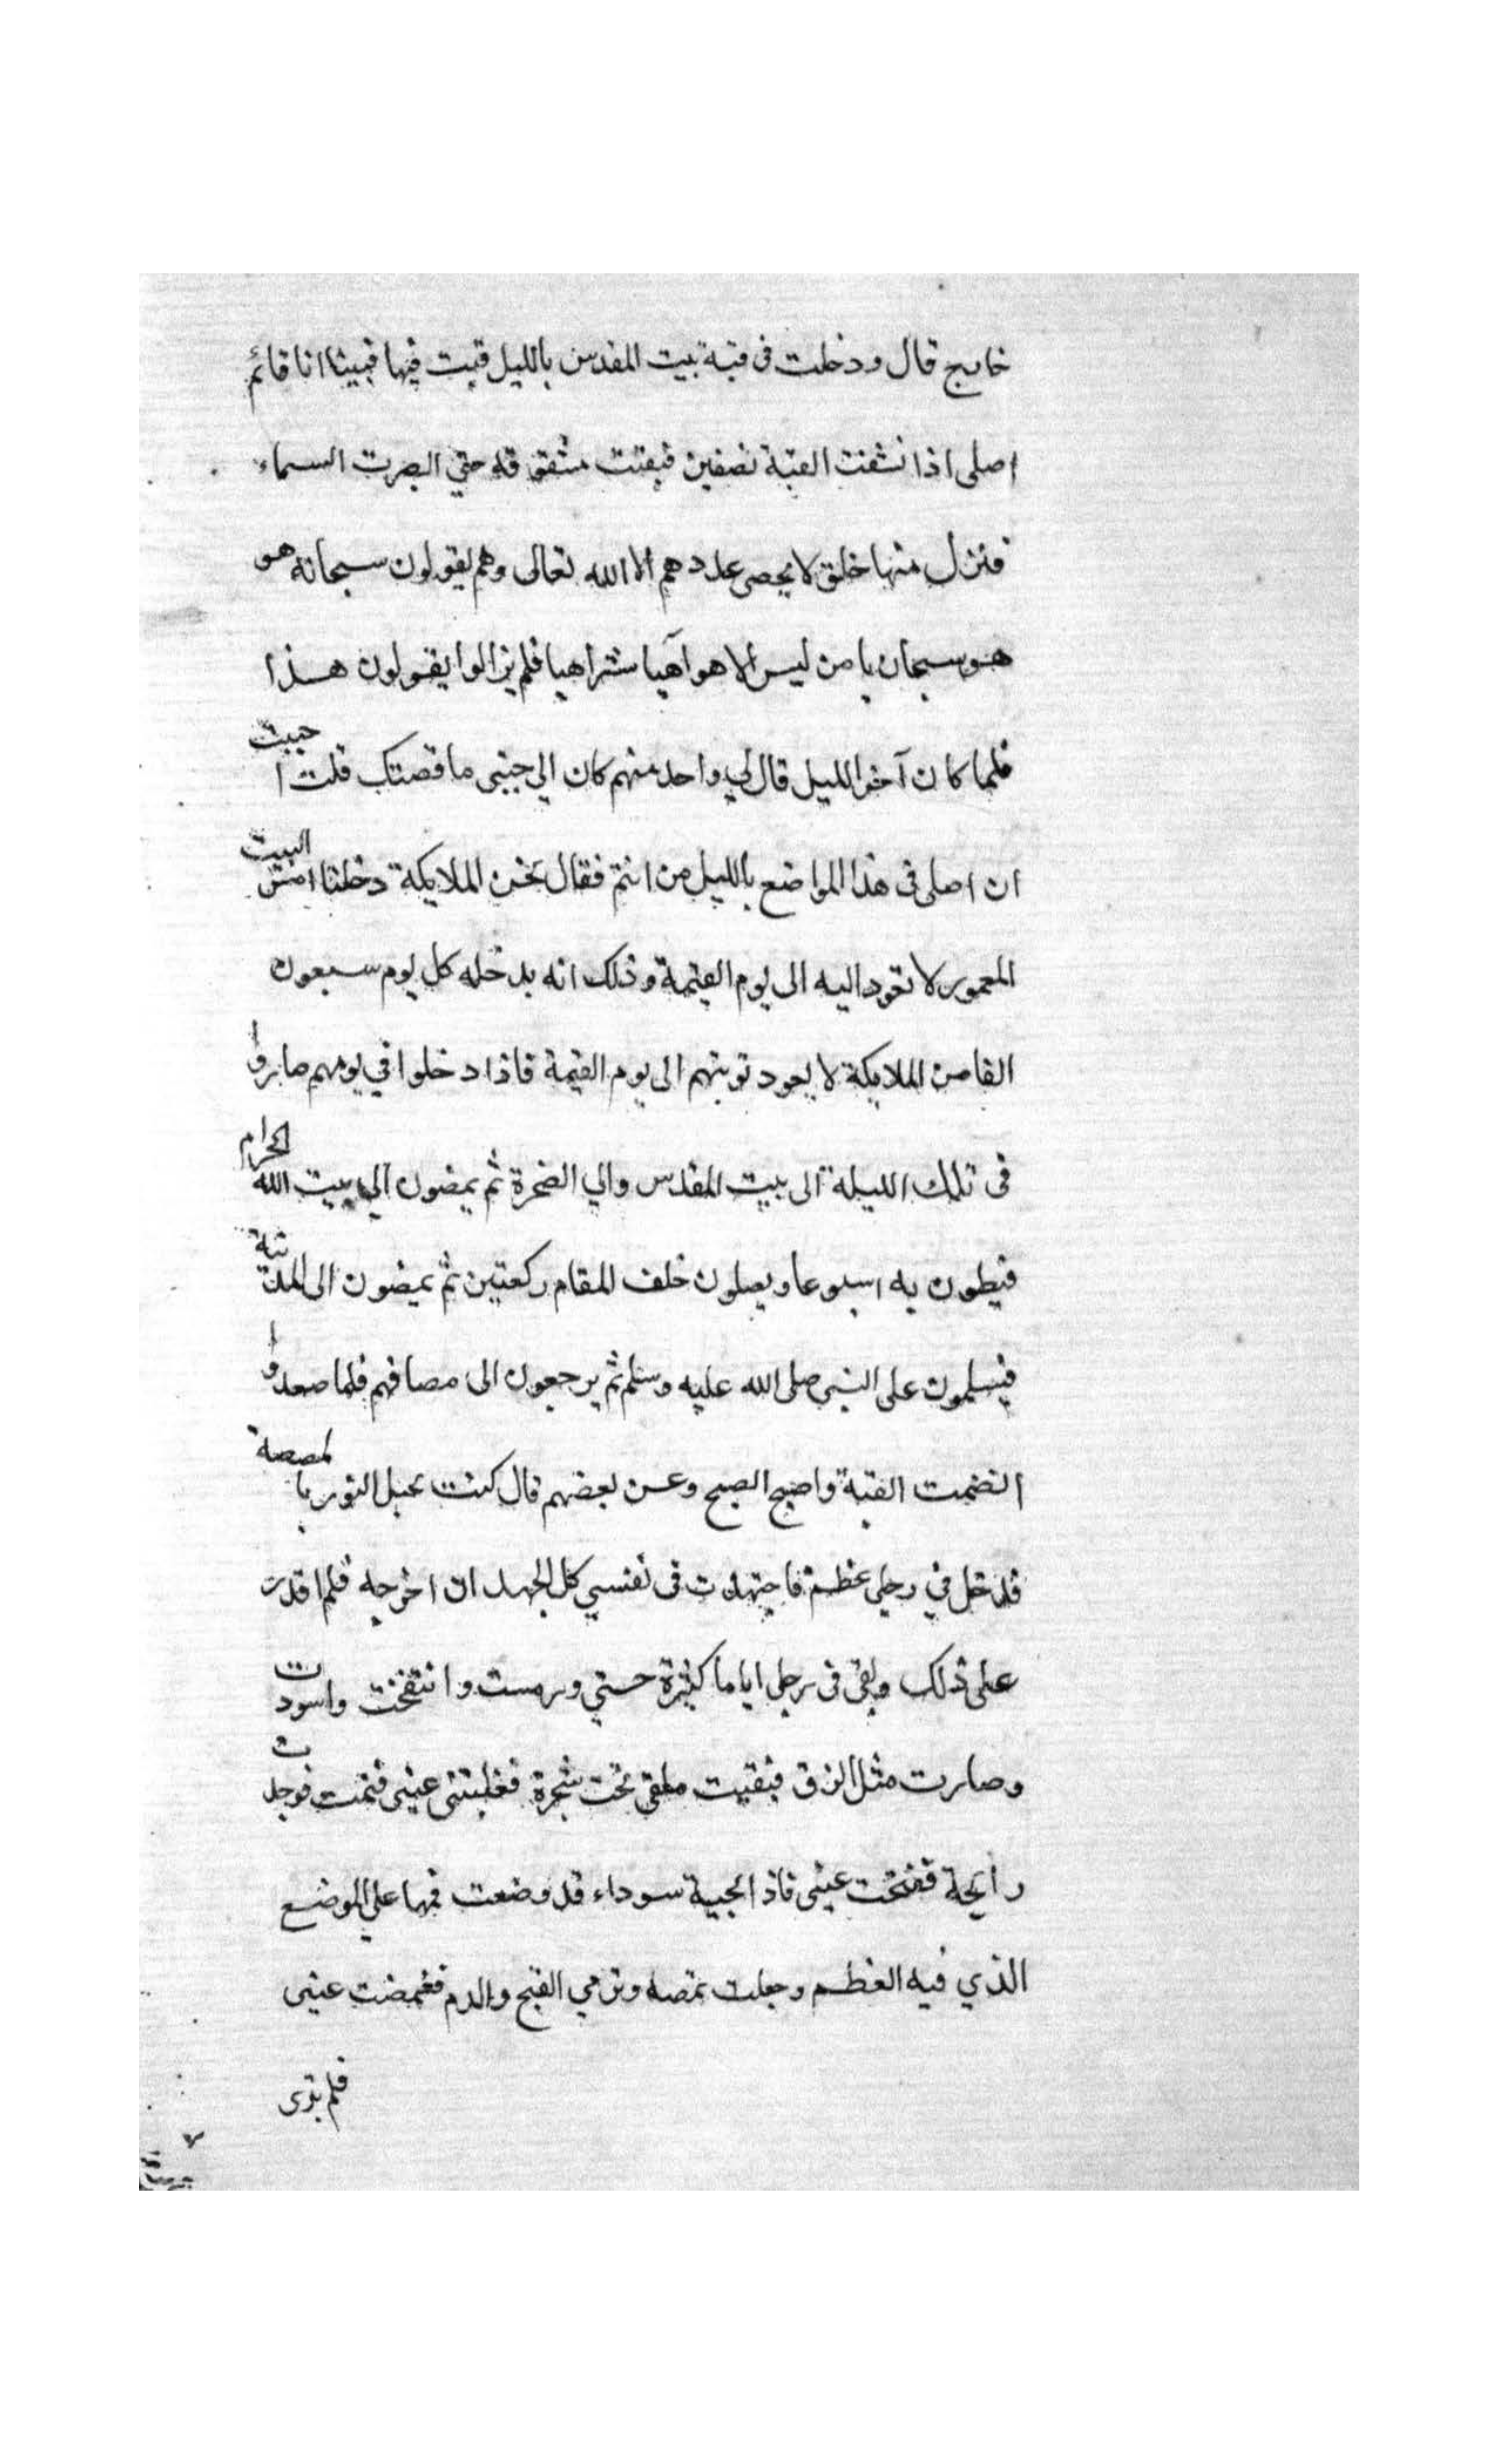 خارج قال ودخلت فى قبة بيت المقدس بالليل فبت فيها فبينا انا قائم
اصلى اذا نشقت القبة نصفين فبقيت مشقوقه حتي ابصرت السماء
فنزل منها خلق لا يحصى عددهم الا الله تعالى وهم يقولون سبحانه هو
هو سبحان يا من ليس الا هو آهيا شراهيا فلم يزالوا يقولون هذا
فلما كان آخر الليل قال لي واحد منهم كان الي جنبى ما قصتك قلت احببت
ان اصلى فى هذا المواضع بالليل من انتم فقال نحن الملايكة دخلنا امس البيت
المعمور لا نعود اليه الى يوم القيمة وذلك انه يدخله كل يوم سبعون
الفا من الملايكة لا يعود نوبتهم الى يوم القيمة فاذا دخلوا في يومهم صاروا
فى تلك الليلة الى بيت المقدس والي الصخرة ثم يمضون الي بيت الله الحرام
فيطون به اسبوعا ويصلون خلف المقام ركعتين ثم يمضون الى المدينة
فيسلمون على النبى صلى الله عليه وسلم ثم يرجعون الى مصافهم فلما صعدوا
انضمت القبة واصبح الصبح وعن بعضهم قال كنت بجبل النور بالمصصة
فدخل في رجلى عظم فاجتهدت فى نفسي كل الجهد ان اخرجه فلم اقدر
على ذلك وبقى فى رجلى اياما كثيرة حتي ورمت وانتفخت واسودت
وصارت مثل الزق فبقيت ملقى تحت شجرة فغلبتنى عينى فنمت فوجدت
رايحة ففتحت عينى فاذا لحية سوداء قد وضعت فمها علي الموضع
الذي فيه العظم وجعلت تمصه وترمي القيح والدم فغمضت عينى
فلم ترى